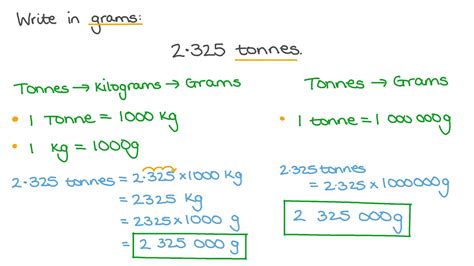 Write in grams:
2.325 tonnes.
Tonnes → Kilograms → Grams
• 1 Tonne = 1000 kg
• 1 kg = 1000g
2.325 tonnes = 2.325 × 1000 kg
= 2325 kg
= 2325 × 1000 g
= 2 325 000 g
Tonnes → Grams
• 1 tonne = 1 000 000g
2.325 tonnes
= 2.325 × 1000000g
2 325 000g